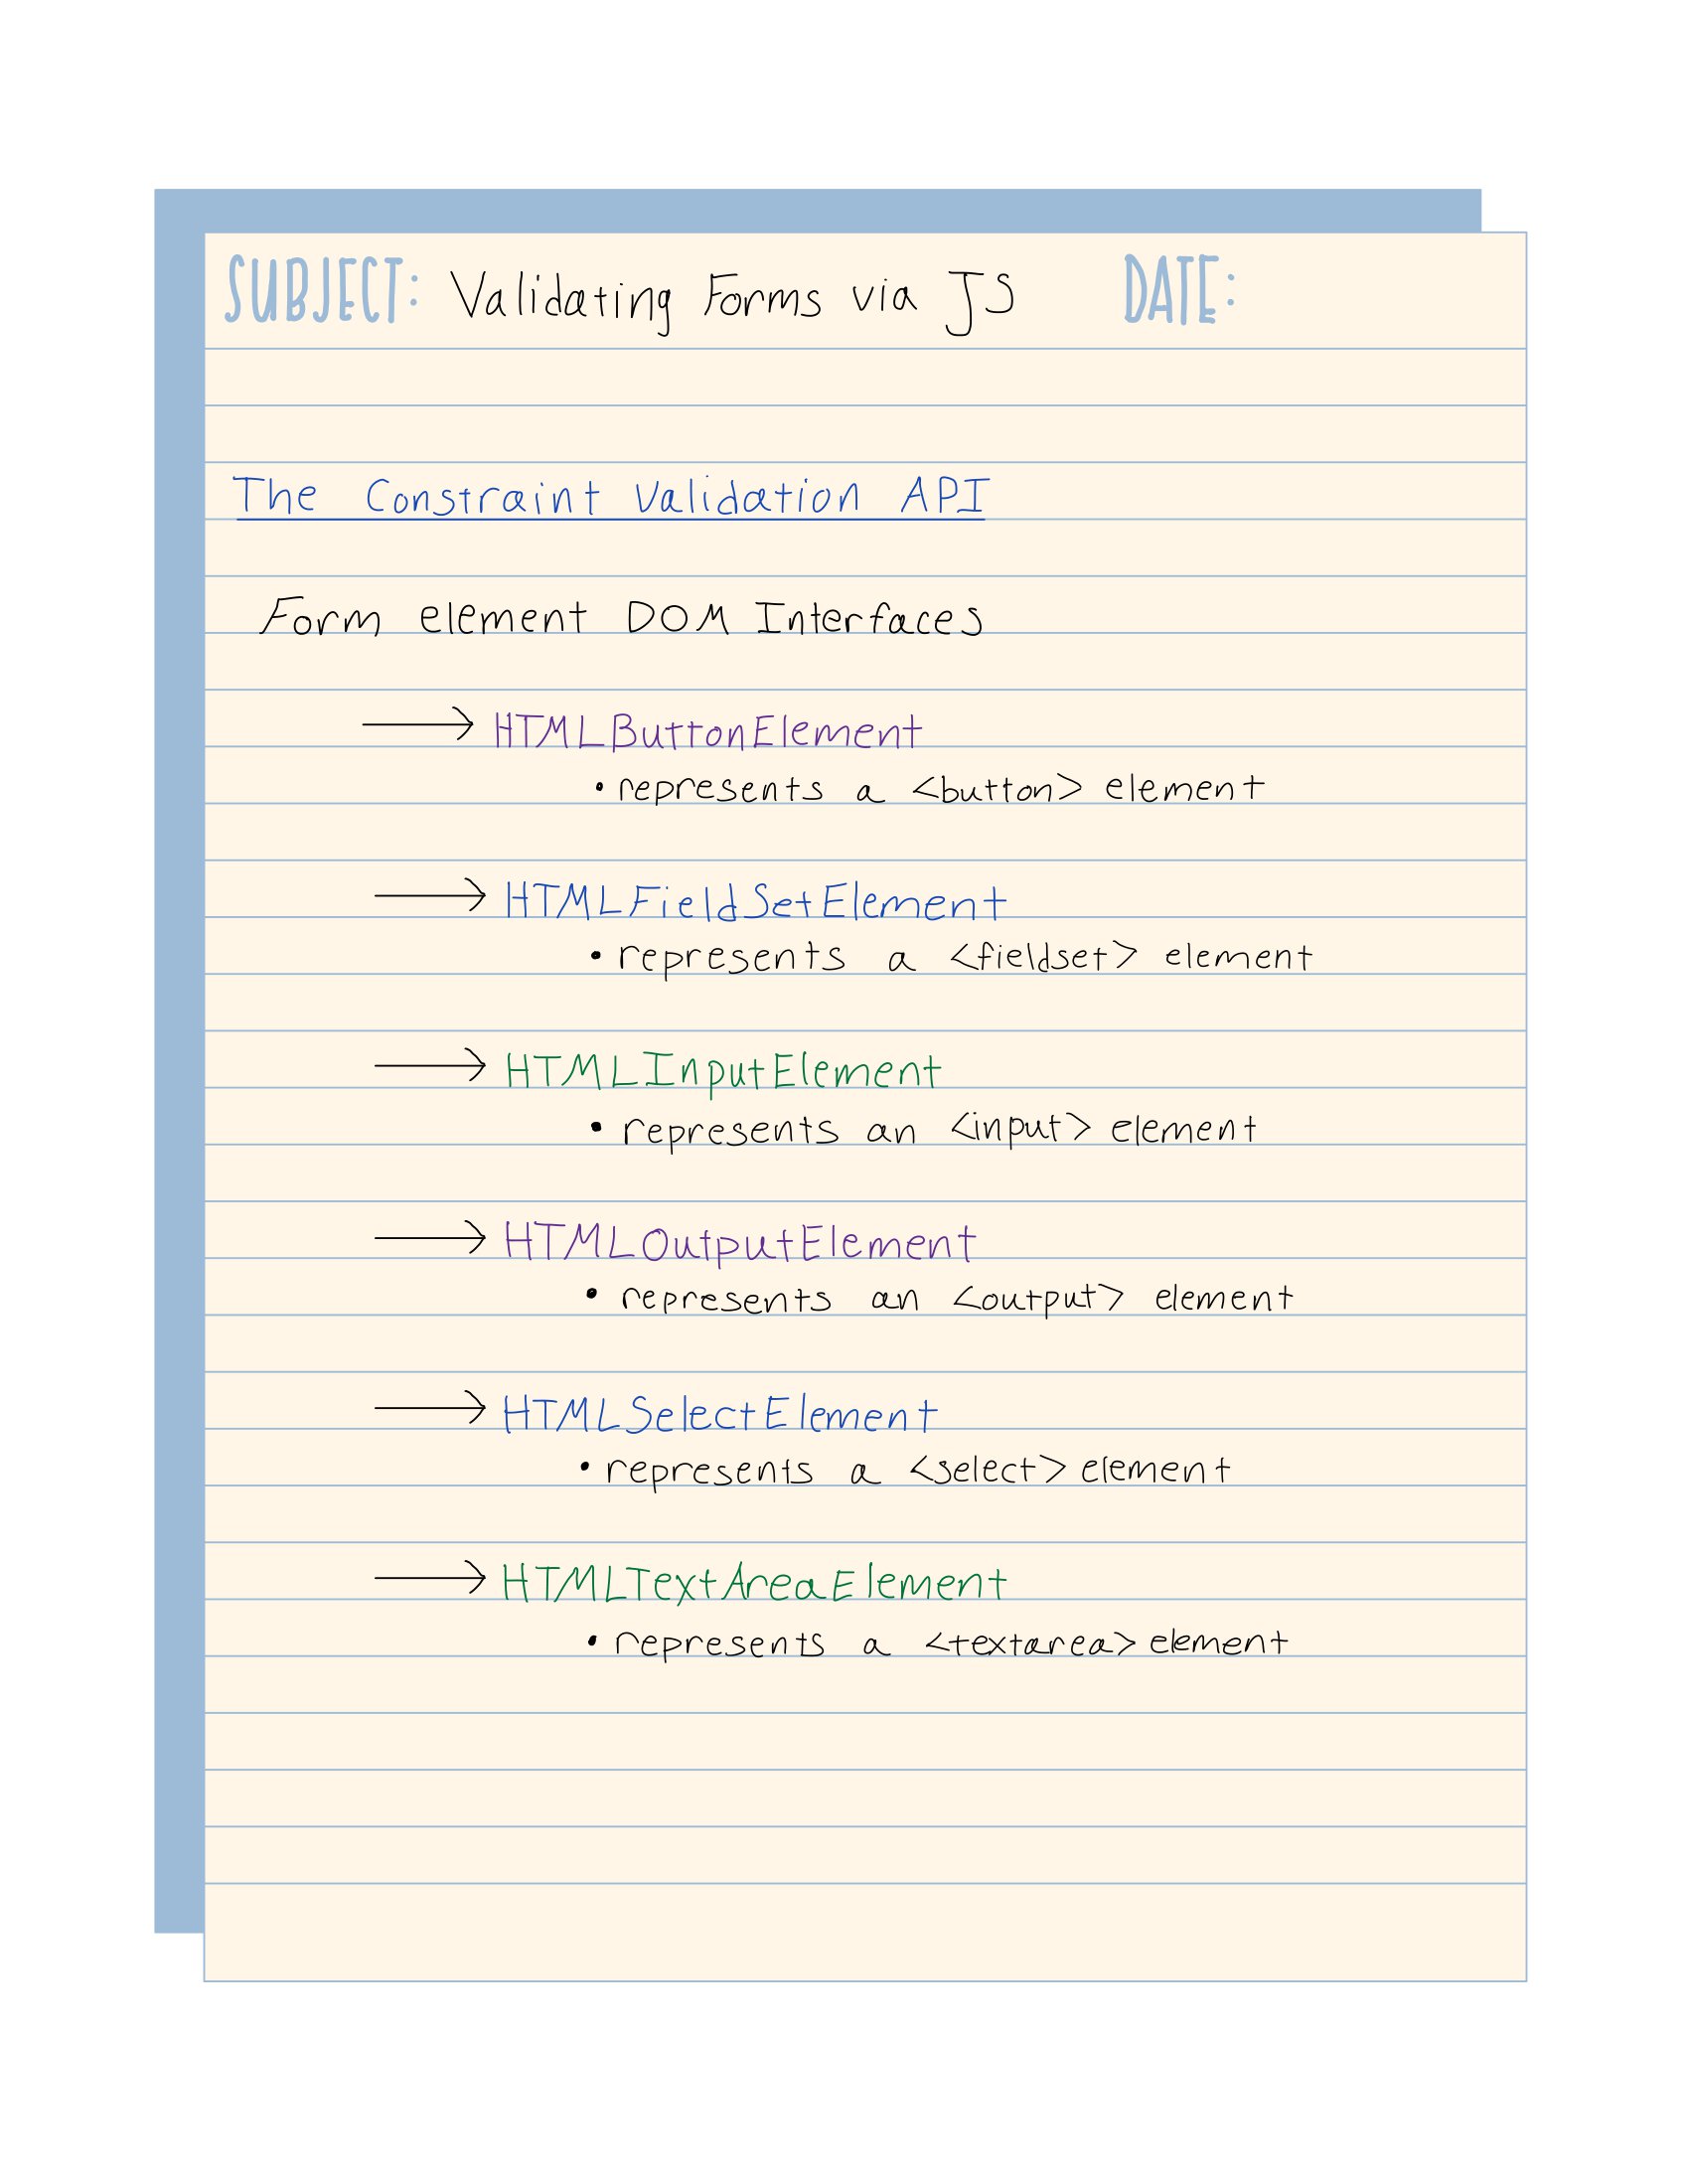 SUBJECT: Validating Forms via JS DATE:
The Constraint Validation API
Form element DOM Interfaces
→ HTMLButtonElement
• represents a <button> element
→ HTMLFieldSetElement
• represents a <fieldset> element
→ HTMLInputElement
• represents an <input> element
→ HTMLOutputElement
• represents an <output> element
→ HTMLSelectElement
• represents a <select> element
→ HTMLTextAreaElement
• represents a <textarea> element